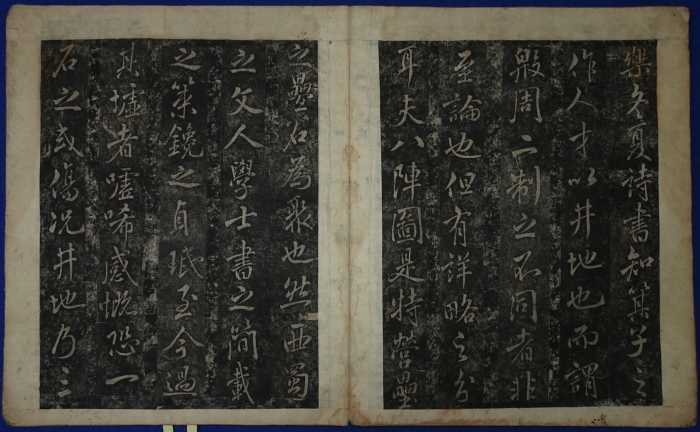 樂冬夏詩書知箕子之
作人才以井地也而謂
殷周二制之不同者非
至論也但有詳略之分
耳夫八陣圖是特營壘
之疊石為聚也然西蜀
之文人學士書之簡載
之策鐫之貞珉至今過
其墟者噓唏感慨恐一
石之或傷况井地乃三